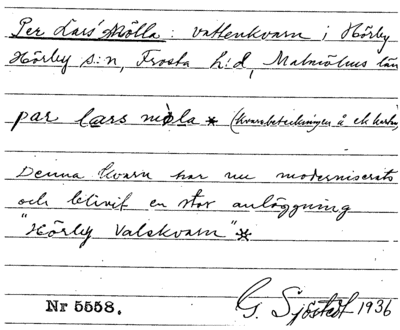 Per Lars' Mölla : vattenkvarn i Hörby
Hörby s:n, Frosta h:d, Malmöhus län
par lars möla * (kvarnbeteckningen å ek. kartan)
Denna kvarn har nu moderniserats
och blivit en stor anläggning
"Hörby Valskvarn" *
Nr 5558. G. Sjöstedt 1936